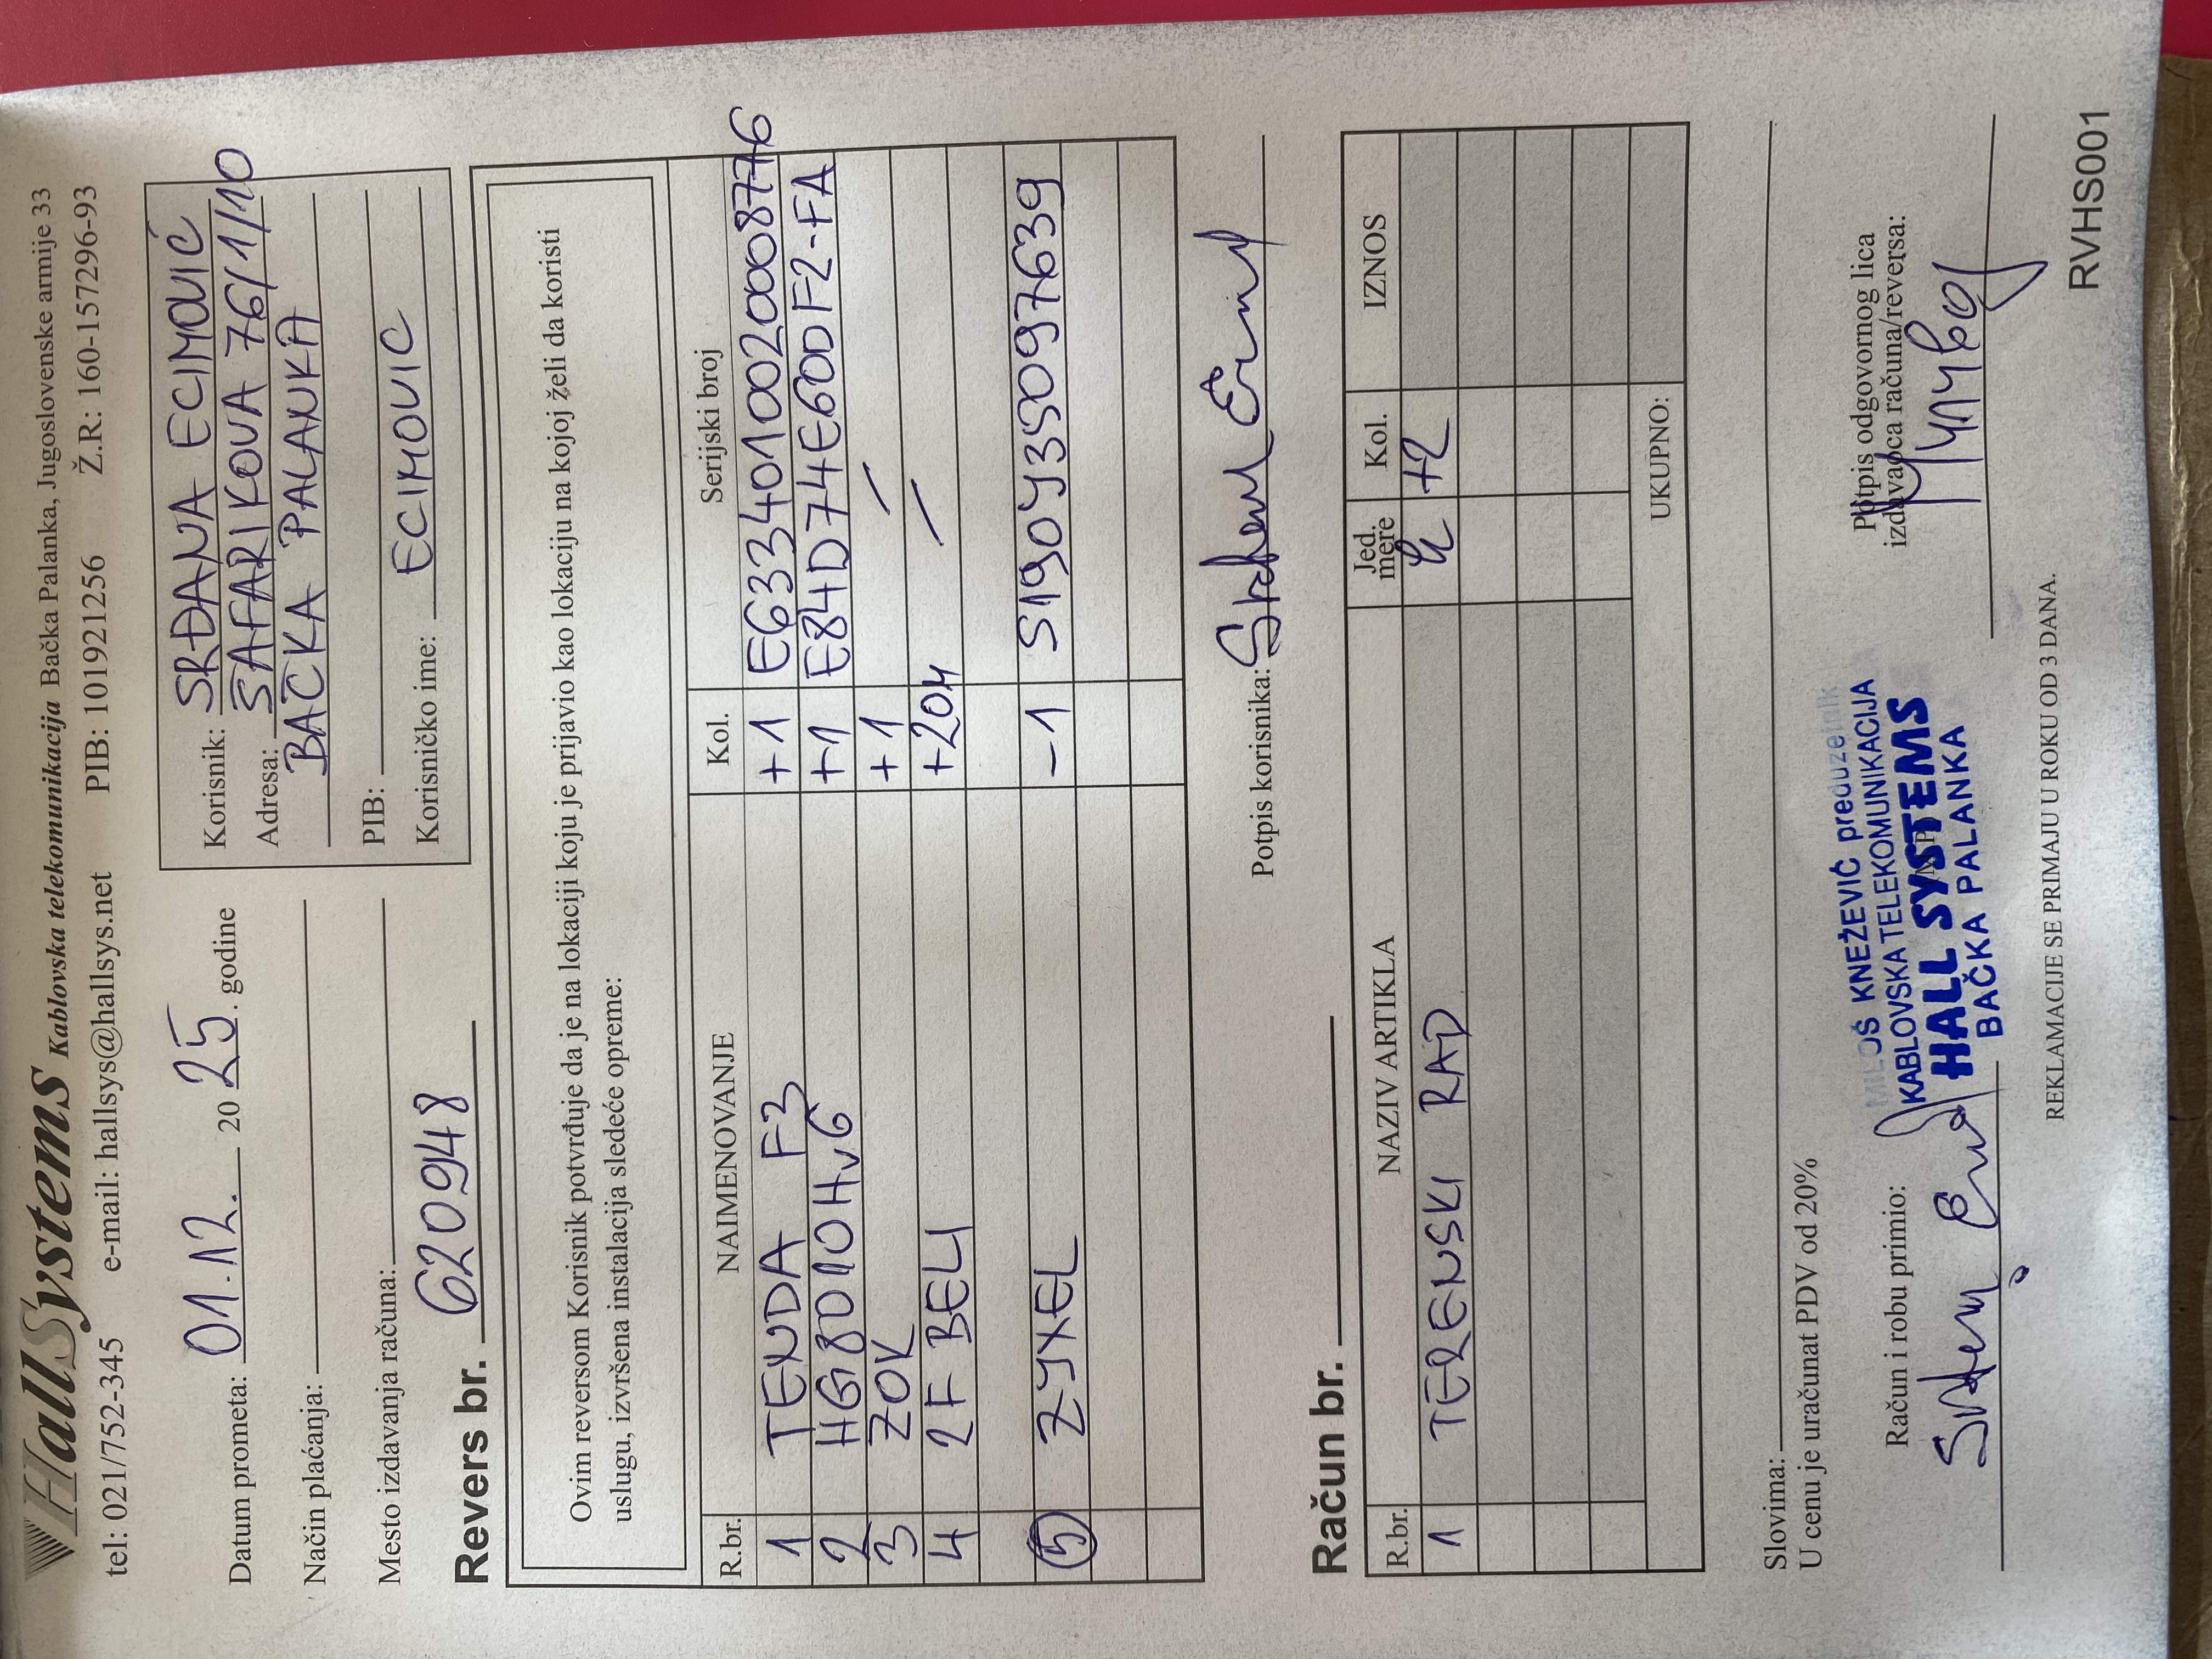 HallSystems Kablovska telekomunikacija Bačka Palanka, Jugoslovenske armije 33
tel: 021/752-345 e-mail: hallsys@hallsys.net PIB: 101921256 Ž.R.: 160-157296-93
Datum prometa: 01.12. 20 25. godine
Način plaćanja:
Mesto izdavanja računa:
Korisnik: SRĐANA ECIMOVIĆ
Adresa: ŠAFARIKOVA 76/1/10
BAČKA PALANKA
PIB:
Korisničko ime: ECIMOVIC
Revers br. 620948
Ovim reversom Korisnik potvrđuje da je na lokaciji koju je prijavio kao lokaciju na kojoj želi da koristi
uslugu, izvršena instalacija sledeće opreme:
R.br. NAIMENOVANJE Kol. Serijski broj
1 TENDA F3 +1 E6334010020008776
2 HG8010Hv6 +1 E84D74E60DF2-FA
3 ZOK +1 /
4 2F BELI +20M /
5 ZYXEL -1 S190Y35097639
Potpis korisnika:
Račun br.
R.br. NAZIV ARTIKLA Jed. mere Kol. IZNOS
1 TERENSKI RAD +2
UKUPNO:
Slovima:
U cenu je uračunat PDV od 20%
Račun i robu primio:
MILOŠ KNEŽEVIĆ preduzetnik
KABLOVSKA TELEKOMUNIKACIJA
HALL SYSTEMS
BAČKA PALANKA
Potpis odgovornog lica
izdavaoca računa/reversa:
REKLAMACIJE SE PRIMAJU U ROKU OD 3 DANA.
RVHS001